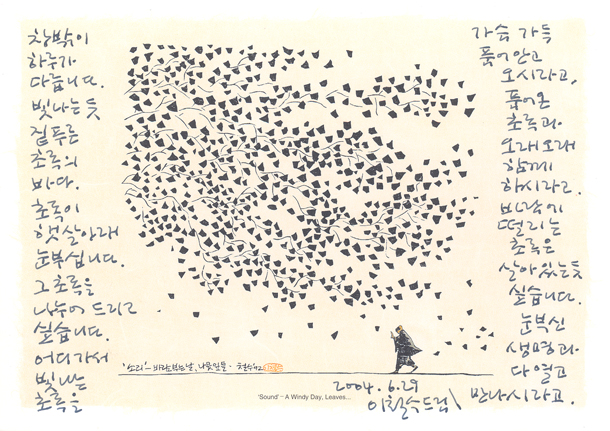 창밖이
하루가
다릅니다.
빛나는 듯
짙푸른
초록의
바다.
초록이
햇살아래
눈부십니다.
그 초록을
나누어 드리고
싶습니다.
어디가서
빛나는
초록을
가슴 가득
품어안고
오시라고,
품어온
초록과
오래오래
함께
하시라고.
바람에
떨리는
초록은
살아있는 듯
싶습니다.
눈부신
생명과
다 열고
만나시라고.
'소리' – 바람부는 날, 나뭇잎들 · 철수 92
'Sound' - A Windy Day, Leaves...
2004. 6. 29
이철수 드림